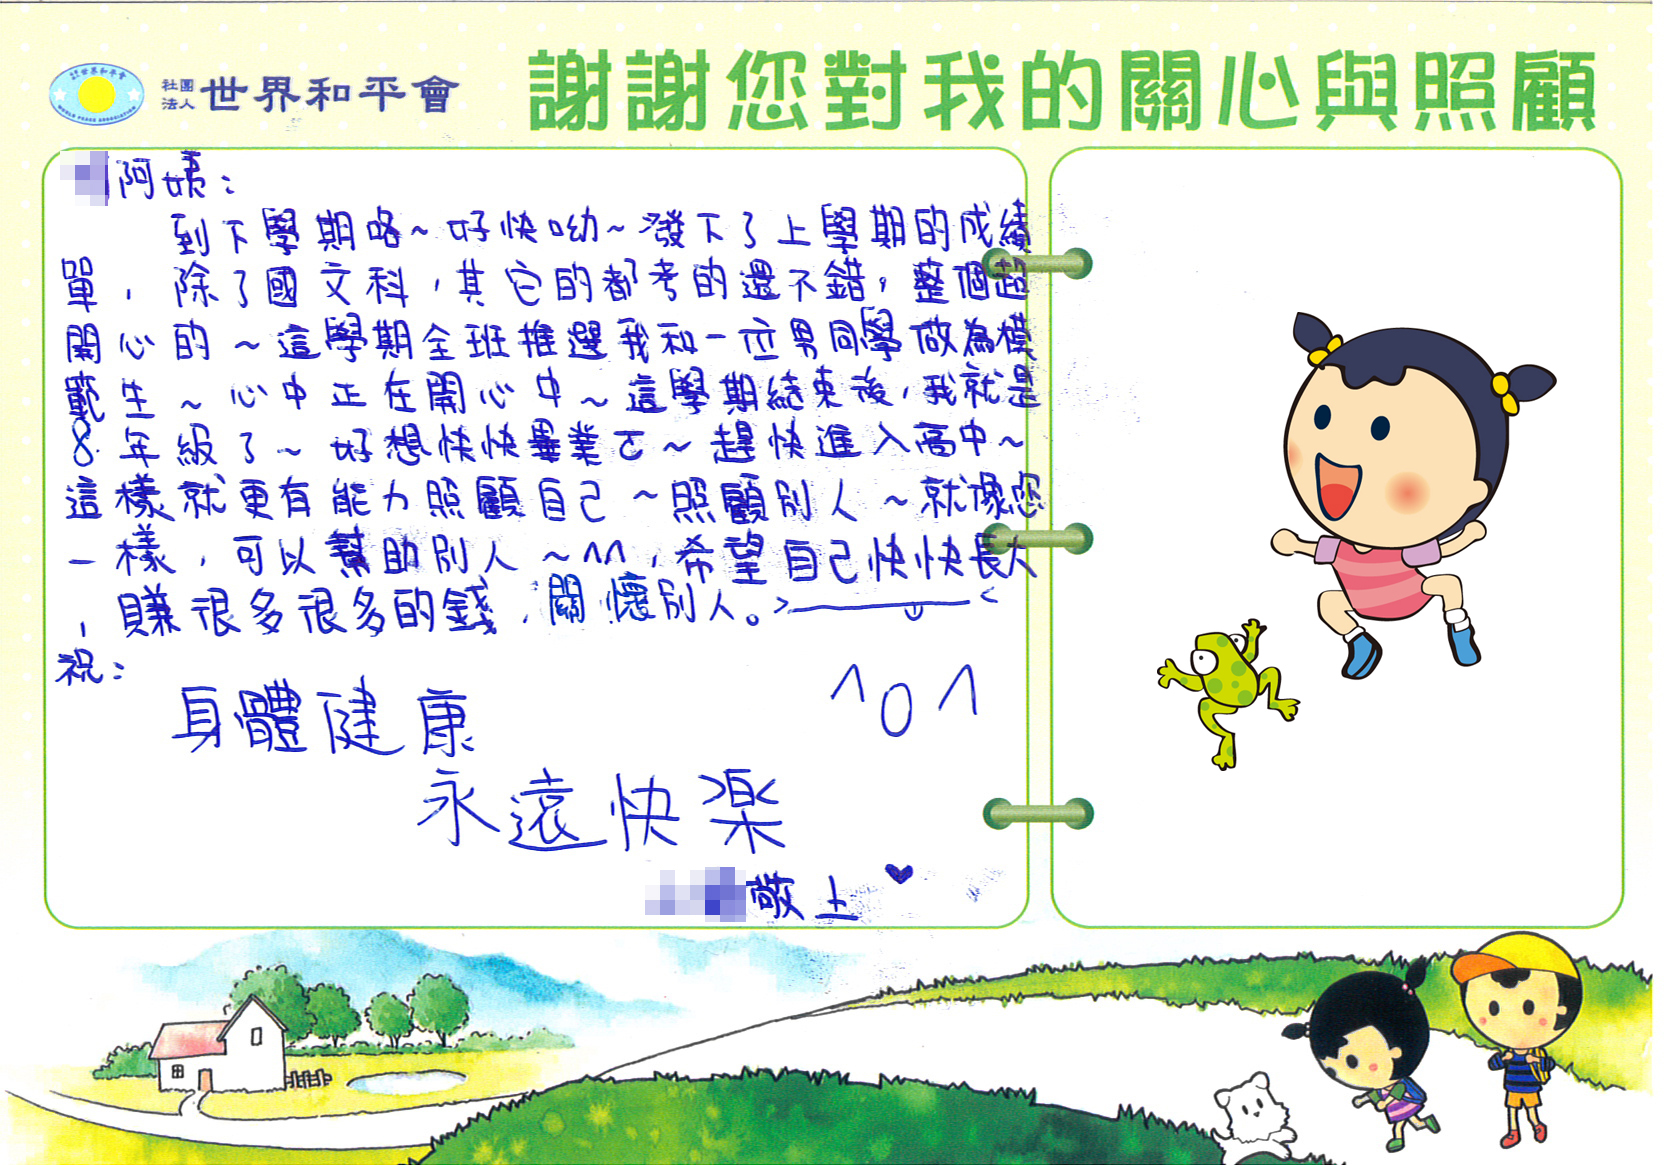 社團法人 世界和平會
謝謝您對我的關心與照顧
WORLD PEACE ASSOCIATION
阿姨：
到下學期咯~好快呦~發下了上學期的成績
單，除了國文科，其它的都考的還不錯，整個超
開心的~這學期全班推選我和一位男同學做為模
範生~心中正在開心中~這學期結束後，我就是
8年級了~好想快快畢業ㄛ~趕快進入高中~
這樣就更有能力照顧自己~照顧別人~就像您
一樣，可以幫助別人~^^，希望自己快快長大
，賺很多很多的錢，關懷別人。>_____<
祝：
身體健康
^0^
永遠快樂
敬上